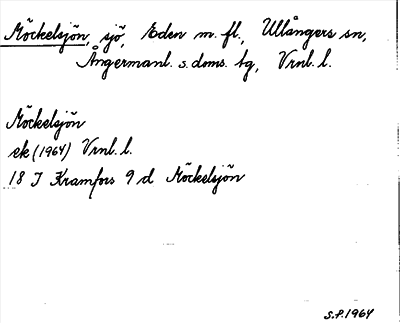 Möckelsjön, sjö, Eden m. fl., Ullångers sn,
Ångermanl. s. doms. tg, Vrnl. l.
Möckelsjön
ek (1964) Vrnl. l.
18 I Kramfors 9 d Möckelsjön
S.P. 1964